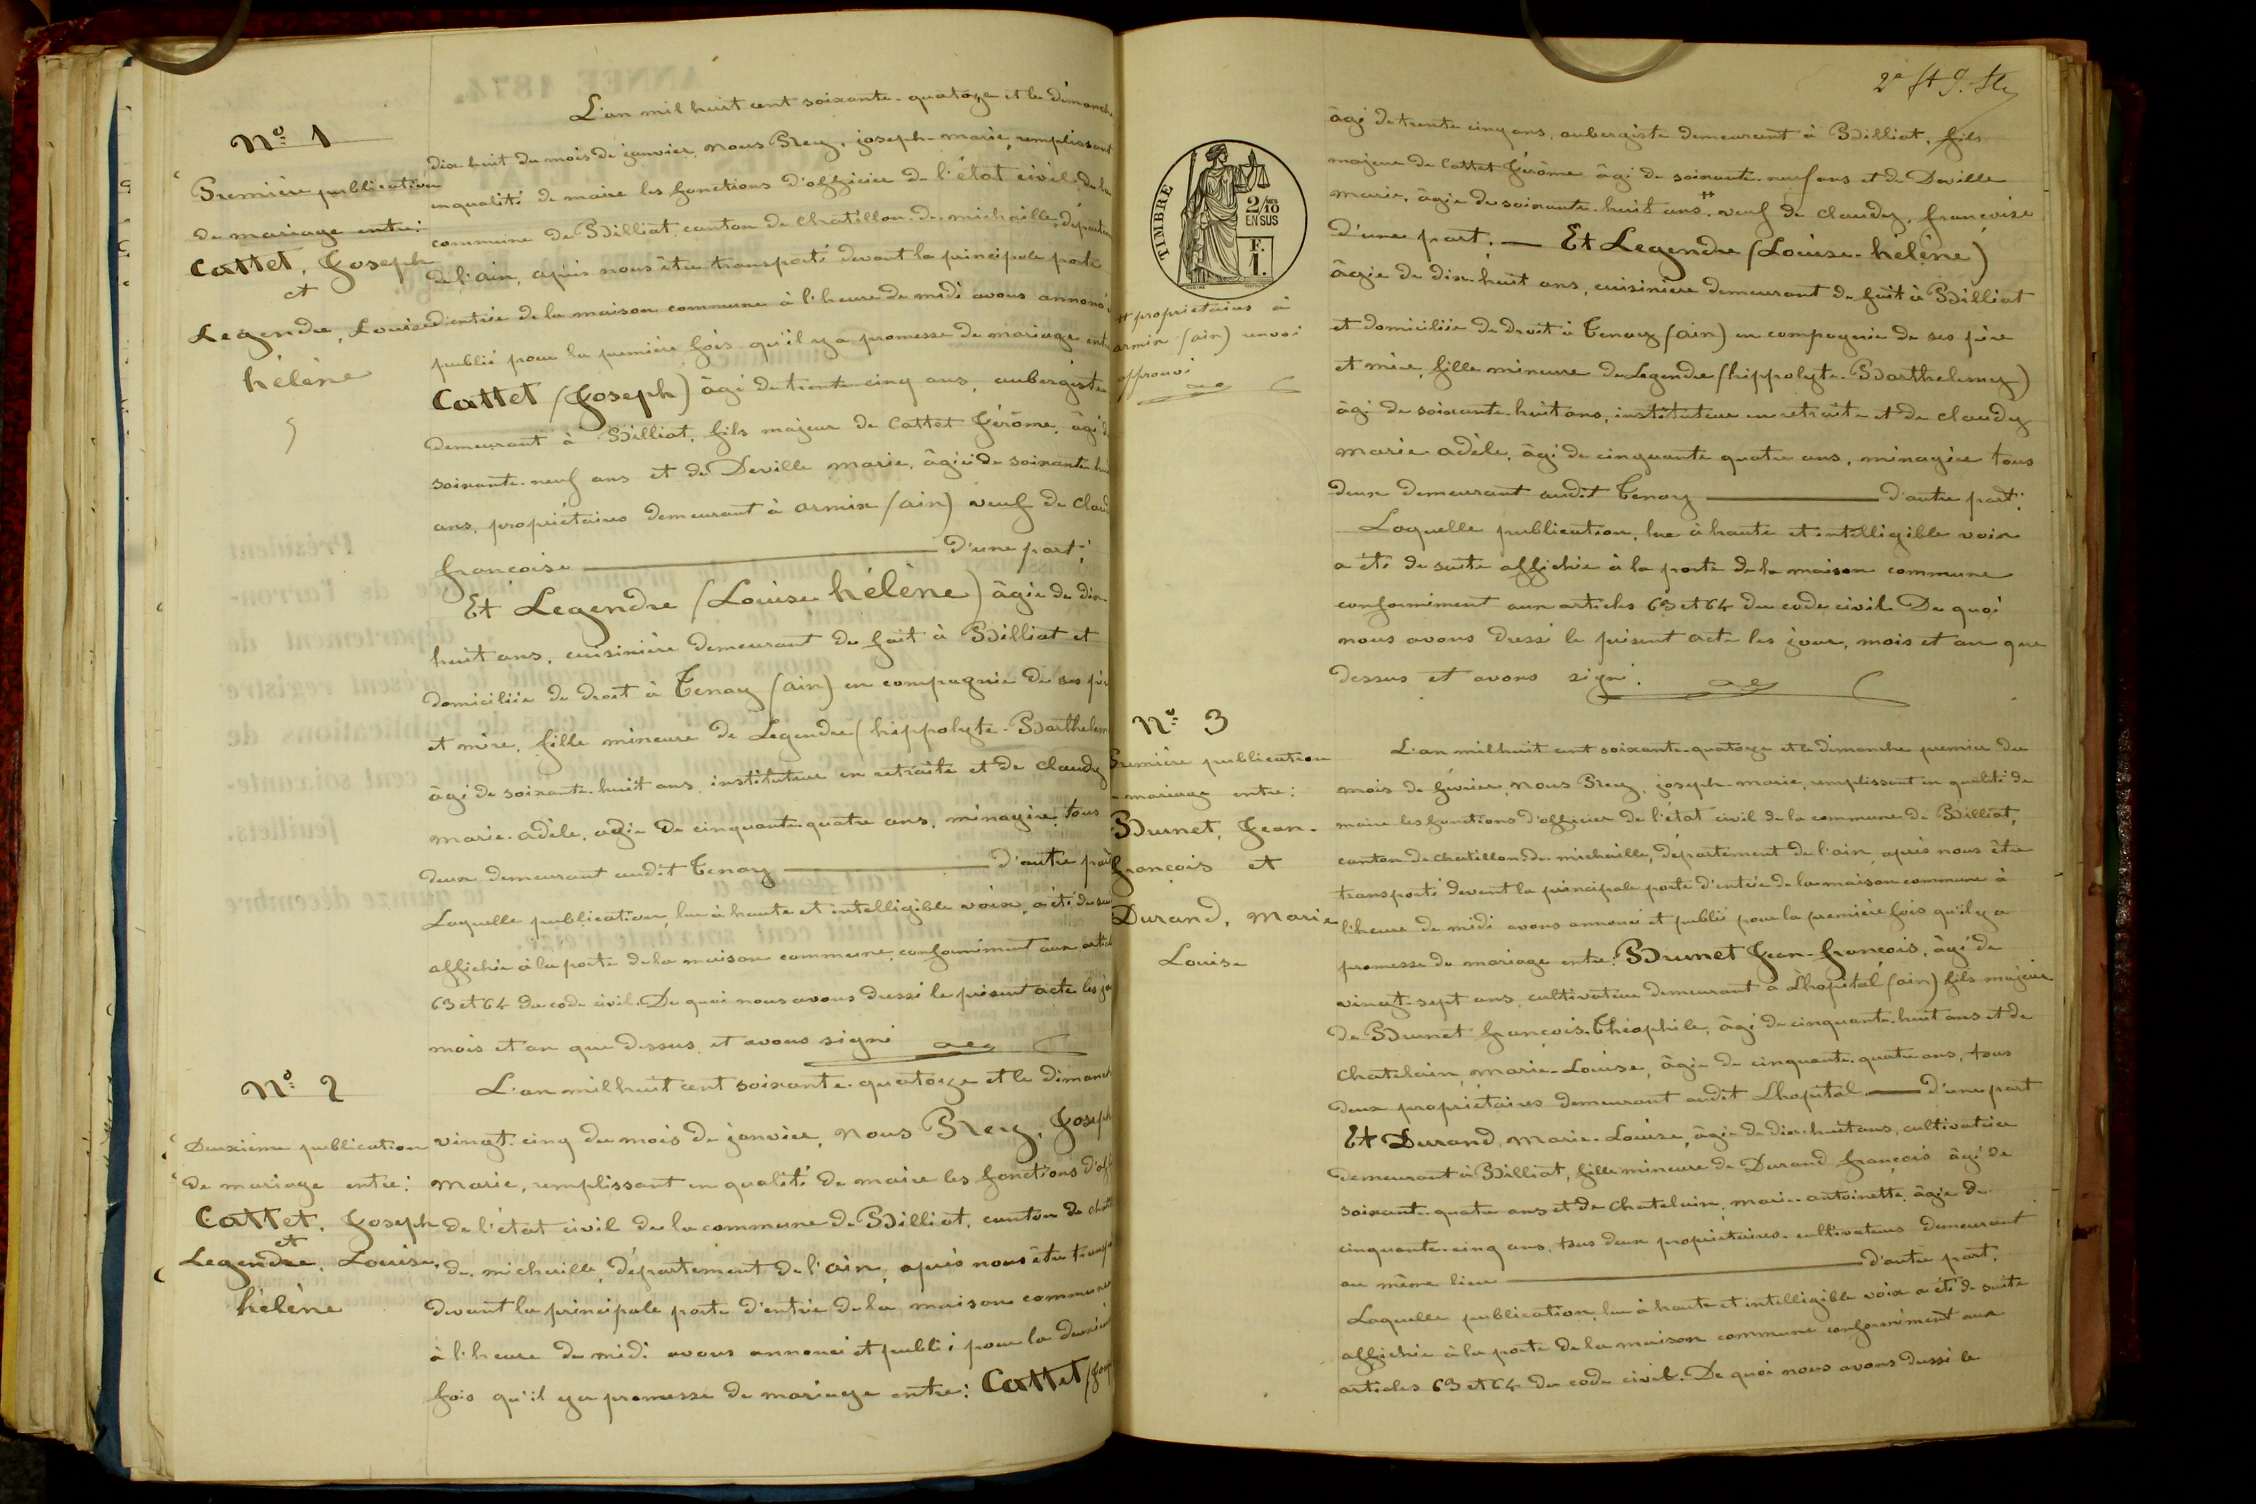 Nº 1
Première publication
de mariage entre:
Cattet, Joseph
et
Legendre, Louise
hélène
L'an mil huit cent soixante-quatorze et le dimanche
dix huit du mois de janvier, nous Rey, joseph-marie, remplissant
en qualité de maire les fonctions d'officier de l'état civil de la
commune de Billiat, canton de chatillon-de-michaille, département
de l'ain, après nous être transporté devant la principale porte
d'entrée de la maison commune à l'heure de midi avons annoncé
publié pour la première fois qu'il y a promesse de mariage entre
Cattet (Joseph) âgé de trente-cinq ans, aubergiste
demeurant à Billiat, fils majeur de Cattet Jérôme, âgé de
soixante-neuf ans et de Deville marie, âgée de soixante-huit
ans, propriétaires demeurant à armix (ain) veuf de Claudy
françoise d'une part;
Et Legendre (Louise hélène) âgée de dix-
huit ans, cuisinière demeurant de fait à Billiat et
domiciliée de droit à Tenay (ain) en compagnie de ses père
et mère, fille mineure de Legendre (hippolyte-Barthelemy
âgé de soixante-huit ans, instituteur en retraite et de claudy
marie-adèle, agée de cinquante-quatre ans, ménagère, tous
deux demeurant audit Tenay d'autre part
Laquelle publication, lue à haute et intelligible voix, a été de suite
affichée à la porte de la maison commune, conformément aux articles
63 et 64 du code civil. De quoi nous avons dressé le présent acte les jour
mois et an que dessus, et avons signé
Nº 2
Deuxième publication
de mariage entre:
Cattet, Joseph
et
Legendre, Louise,
hélène
L'an mil huit cent soixante-quatorze et le dimanche
vingt-cinq du mois de janvier, nous Rey, Joseph
marie, remplissant en qualité de maire les fonctions d'off
de l'état civil de la commune de Billiat, canton de chatil
de-michaille, département de l'ain, après nous être transpo
devant la principale porte d'entrée de la maison commune
à l'heure de midi avons annoncé et publié pour la deuxième
fois qu'il y a promesse de mariage entre: Cattet (Joseph
TIMBRE
2/10 EN SUS
F.
1.
++ propriétaires à
armix (ain) renvoi
approuvé
âgé de trente cinq ans, aubergiste demeurant à Billiat, fils
majeur de Cattet Jérôme âgé de soixante-neuf ans et de Deville
marie, âgée de soixante-huit ans, ++ veuf de claudy, françoise
d'une part. Et Legendre (Louise-hélène)
âgée de dix-huit ans, cuisinière demeurant de fait à Billiat
et domiciliée de droit à Tenay (ain) en compagnie de ses père
et mère, fille mineure de Legendre (hippolyte-Barthelemy)
âgé de soixante-huit ans, instituteur en retraite et de claudy
marie adèle, âgé de cinquante quatre ans, ménagère tous
deux demeurant audit Tenay d'autre part.
Laquelle publication, lue à haute et intelligible voix
a été de suite affichée à la porte de la maison commune
conformément aux articles 63 et 64 du code civil. De quoi
nous avons dressé le présent acte les jour, mois et an que
dessus et avons signé.
Nº 3
Première publication
mariage entre:
Brunet, Jean-
françois et
Durand, marie
Louise
L'an mil huit cent soixante-quatorze et le dimanche premier du
mois de février, nous Rey, joseph-marie, remplissant en qualité de
maire les fonctions d'officier de l'état civil de la commune de Billiat,
canton de chatillon-de-michaille, département de l'ain, après nous être
transporté devant la principale porte d'entrée de la maison commune à
l'heure de midi avons annoncé et publié pour la première fois qu'il y a
promesse de mariage entre: Brunet Jean-françois, âgé de
vingt-sept ans, cultivateur demeurant à Lhopital (ain) fils majeur
de Brunet françois-Théophile, âgé de cinquante-huit ans et de
chatelain, marie-Louise, âgée de cinquante-quatre ans, tous
deux propriétaires demeurant audit Lhopital d'une part
Et Durand, marie-Louise, âgée de dix-huit ans, cultivatrice
demeurant à Billiat, fille mineure de Durand françois âgé de
soixante-quatre ans et de Chatelain, marie-antoinette, âgée de
cinquante-cinq ans, tous deux propriétaires-cultivateurs demeurant
au même lieu d'autre part.
Laquelle publication, lue à haute et intelligible voix a été de suite
affichée à la porte de la maison commune conformément aux
articles 63 et 64 du code civil. De quoi nous avons dressé le